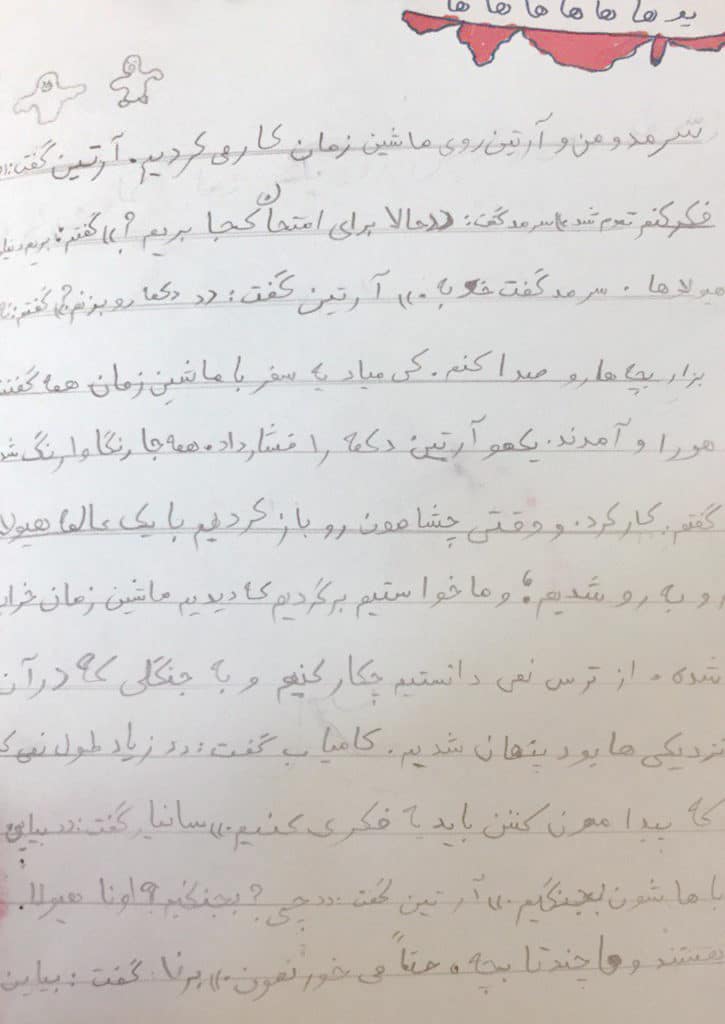 یوهاهاهاهاها
سرمد و من و آرتین روی ماشین زمان کار می کردیم. آرتین گفت: ((
فکر کنم تموم شد)) سرمد گفت: ((حالا برای امتحان کجا بریم؟)) گفتم: بریم دنیای
هیولاها. سرمد گفت خوبه.)) آرتین گفت: ((دکمه رو بزنم؟)) گفتم: نه
بزار بچه هارو صدا کنم. کی میاد یه سفر با ماشین زمان همه گفتند
هورا و آمدند. یکهو آرتین دکمه را فشار داد. همه جا رنگاوارنگ شد
گفتم. کار کرد. و وقتی چشامون رو باز کردیم با یک عالمه هیولا
رو به رو شدیم؛ و ما خواستیم برگردیم که دیدیم ماشین زمان خراب
شده. از ترس نمی دانستیم چکار کنیم و به جنگلی که در آن
نزدیکی ها بود پنهان شدیم. کامیاب گفت: ((زیاد طول نمی ک
که پیدا مون کنن باید یه فکری کنیم.)) سانیار گفت: ((بیایین
باهاشون بجنگیم.)) آرتین گفت: ((چی؟ بجنگیم؟ اونا هیولا
هستند و ما چندتا بچه. حتماً می خورنمون.)) برنا گفت: بیاین